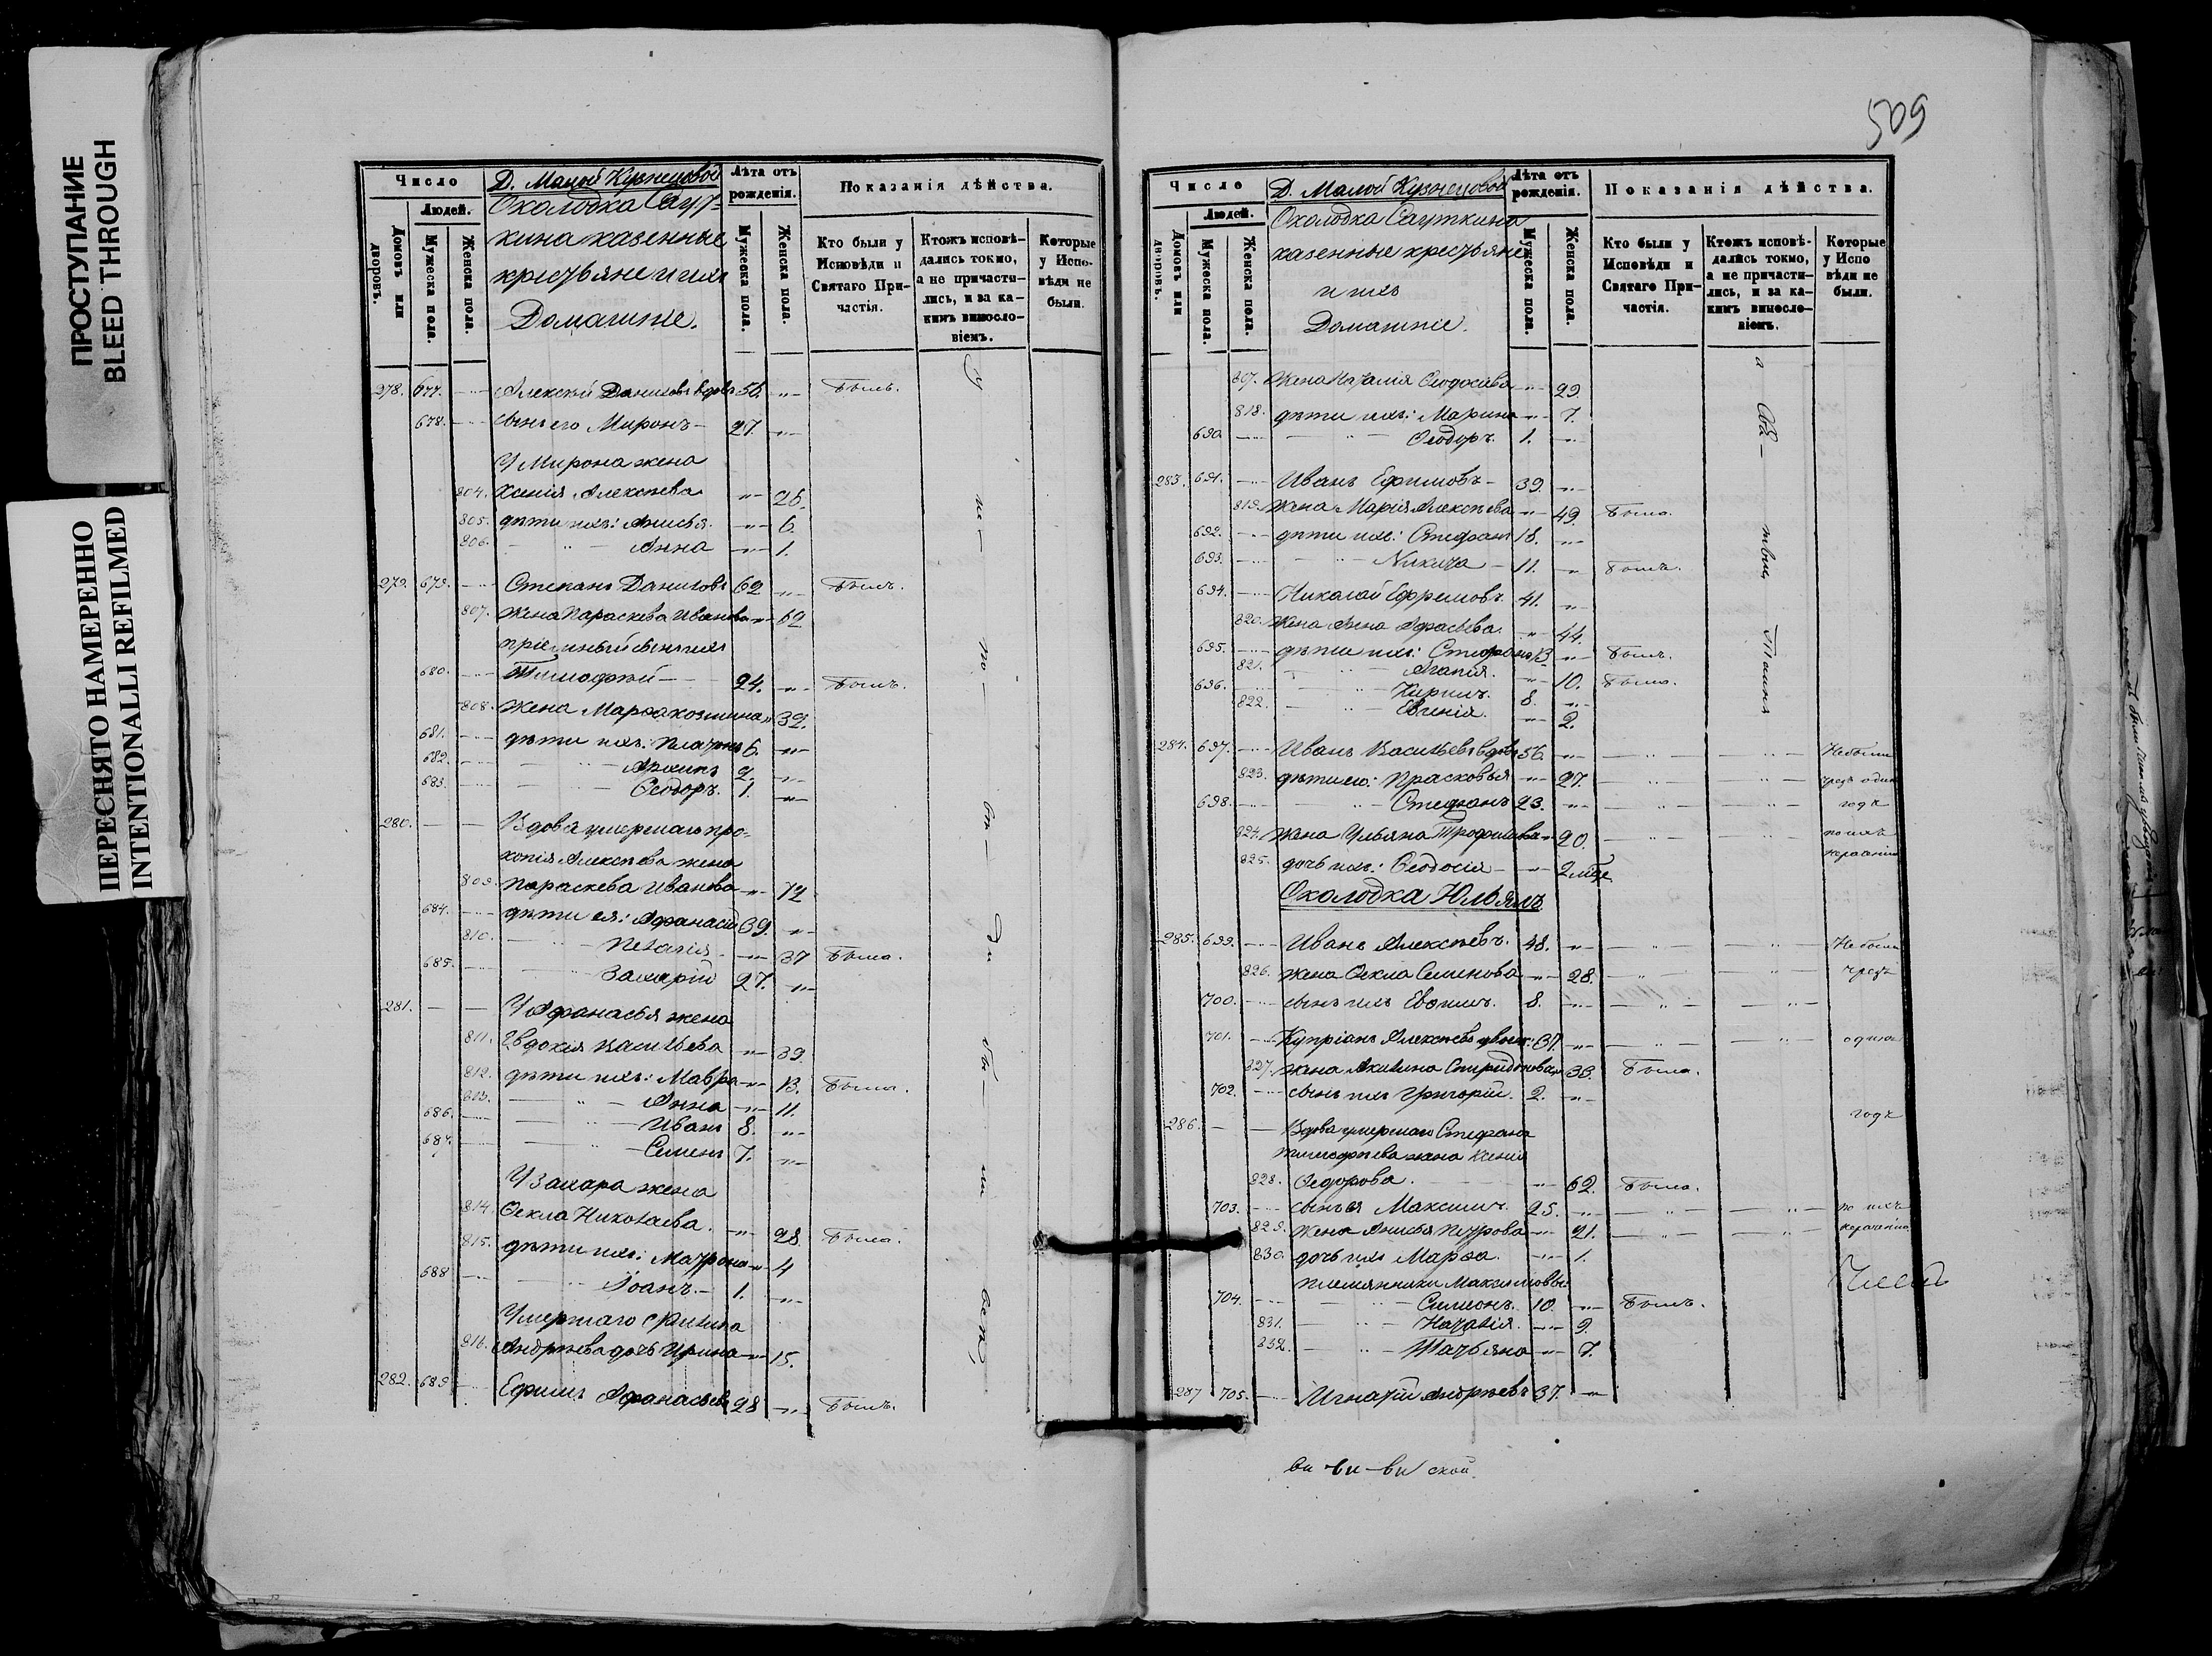 ПРОСТУПАНИЕ
BLEED THROUGH
ПЕРЕСНЯТО НАМЕРЕННО
INTENTIONALLI REFILMED
Число
Людей.
Домовъ или дворовъ.
Мужеска пола.
Женска пола.
Д. Малой Кузнецовой
Околодка Саут-
кина казенные
крестьяне и ихъ
Домашніе.
Лѣта отъ рожденія.
Мужеска пола.
Женска пола.
Показанія дѣйства.
Кто были у Исповѣди и Святаго Причастія.
Ктожъ исповѣдались токмо, а не причастились, и за какимъ винословіемъ.
Которые у Исповѣди не были.
278. 677. Алексѣй Даниловъ вдовъ 56. Былъ.
678. сынъ его Миронъ 27.
У Мирона жена
804. Ксенія Алексѣева 26.
805. дѣти ихъ: Анисья 6.
806. Анна 1.
279. 679. Степанъ Даниловъ 62 Былъ.
807. жена Параскева Иванова 62
пріемный сынъ ихъ
680. Тимофѣй 24. Былъ.
808. жена Марѳа Козмина 32.
681. дѣти ихъ: Платонъ 6.
682. Архипъ 2.
683. Ѳеодоръ. 1.
280. Вдова умершаго Про-
копія Алексѣева жена
809. Параскева Иванова 72
684. дѣти ея: Афанасій 39.
810. Пелагія 37 Была.
685. Захарій 27.
281. У Афанасья жена
811. Евдокія Васильева 39.
812. дѣти ихъ: Мавра 13. Была.
813. Анна 11.
686. Иванъ 8.
687. Семенъ 7.
У Захара жена
814. Ѳекла Николаева. 28 Была.
815. дѣти ихъ: Матрона 4
688 Іоанъ. 1.
Умершаго
816. Андрѣева дочь Ирина 15.
282. 689 Ефимъ Афанасьевъ 28 Былъ.
509
Число
Людей.
Домовъ или дворовъ.
Мужеска пола.
Женска пола.
Д. Малой Кузнецовой
Околодка Сауткина
казенные крестьяне
и ихъ
Домашніе.
Лѣта отъ рожденія.
Мужеска пола.
Женска пола.
Показанія дѣйства.
Кто были у Исповѣди и Святаго Причастія.
Ктожъ исповѣдались токмо, а не причастились, и за какимъ винословіемъ.
Которые у Исповѣди не были.
817. жена Наталія Ѳеодосѣева 29.
818. дѣти ихъ: Марина 7.
690. Ѳеодоръ. 1.
283. 691. Иванъ Ефимовъ 39.
819. жена Марія Алексѣева 49. Была.
692. дѣти ихъ: Стефанъ 18.
693. Никита 11. Былъ.
694. Николай Ефремовъ 41.
820. жена Анна 44.
695. дѣти ихъ: Стефанъ 13 Былъ.
821. Агапія. 10. Была.
696. Кирилъ. 8.
822. Евгенія. 2.
284. 697. Иванъ Васильевъ вдовъ 56. Небыли
823. дѣти его: Прасковья 27. чрезъ одинъ
698. Стефанъ 23. годъ
824. жена Ульяна Трофимова 20. по ихъ
825. дочь ихъ: Ѳеодосія 2 нераденію
Околодка
285. 699. Иванъ Алексѣевъ. 48. Небыли
826. жена Ѳекла Семенова 28. чрезъ
700. сынъ ихъ Евфимъ. 8.
701. Купріанъ Алексѣевъ 37. одинъ
827. жена Акилина Спиридонова 38. Была.
702. сынъ ихъ Григорій. 2.
годъ
286. Вдова умершаго Стефана
Тимофѣева жена Ксенія
828. Ѳедорова. 62. Была.
703. сынъ ея Максимъ. 25. по ихъ
829. жена Анисья Петрова 21. нераденію
830. дочь ихъ Марѳа. 1.
племянники Максимовы
704. Симеонъ. 10. Былъ.
831. Наталія. 9.
832. Татьяна 7.
287 705. Игнатій Андрѣевъ 37.